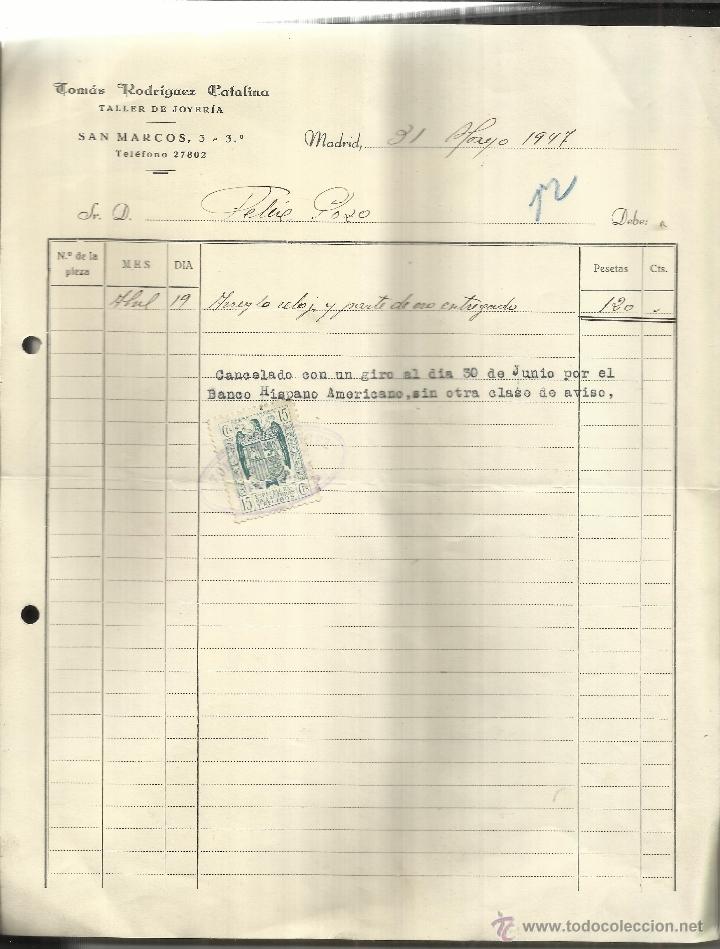 Tomás Rodríguez Catalina
TALLER DE JOYERÍA
SAN MARCOS, 3 - 3.º
Teléfono 27802
Madrid, 31 Mayo 1947
Sr. D. Felix Pozo Debe:
N.º de la pieza MES DIA Pesetas Cts.
Abril 19 Arreglo reloj y parte de oro entregado 120
Cancelado con un giro al dia 30 de Junio por el
Banco Hispano Americano, sin otra clase de aviso,
15 Cts
15 Cts
www.todocoleccion.net